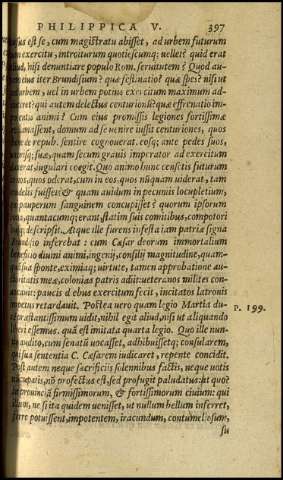 PHILIPPICA V. 397
est se, cum magistratu abisset, ad urbem futurum
exercitu, introiturum quotiescunq; uellet? quid erat
aliud, nisi denuntiare populo Rom. seruitutem? Quod au-
eius iter Brundisium? quæ festinatio? quæ spes? nisi ut
urbem, uel in urbem potius exercitum maximum ad-
qui autem delectus centurionũ? quæ effrenatio im-
animi? Cum eius promissis legiones fortissimæ
domum ad se uenire iussit centuriones, quos
de repub. sentire cognouerat. eosq; ante pedes suos,
suæ, quam secum grauis imperator ad exercitum
iugulari coegit. Quo animo hunc censetis futurum
quos oderat, cum in eos. quos nũquam uiderat, tam
fuisset? & quam auidum in pecunijs locupletium,
pauperum sanguinem concupisset? quorum ipsorum
quantacumq; erant, statim suis comitibus, compotori
descripsit. Atque ille furens infesta iam patriæ signa
inferebat: cum Cæsar deorum immortalium
diuini animi, ingenij, consilij magnitudine, quam-
sponte, eximiaq; uirtute, tamen approbatione au-
meæ, colonias patris adijt: ueteranos milites con-
paucis diebus exercitum fecit, incitatos latronis
retardauit. Postea uero quam legio Martia du-
præstantissimum uidit, nihil egit aliud, nisi ut aliquando
essemus. quã est imitata quarta legio. Quo ille nun-
audito, cum senatũ uocasset, adhibuissetq; consularem,
sua sententia C. Cæsarem iudicaret, repente concidit.
Post autem neque sacrificijs solennibus factis, neque uotis
nũcupatis, nõ profectus est, sed profugit paludatus. at quò?
prouinciã firmissimorum, & fortissimorum ciuium: qui
ne si ita quidem uenisset, ut nullum bellum inferret,
ferre potuissent, impotentem, iracundum, contumeliosum,
su
P. 199.